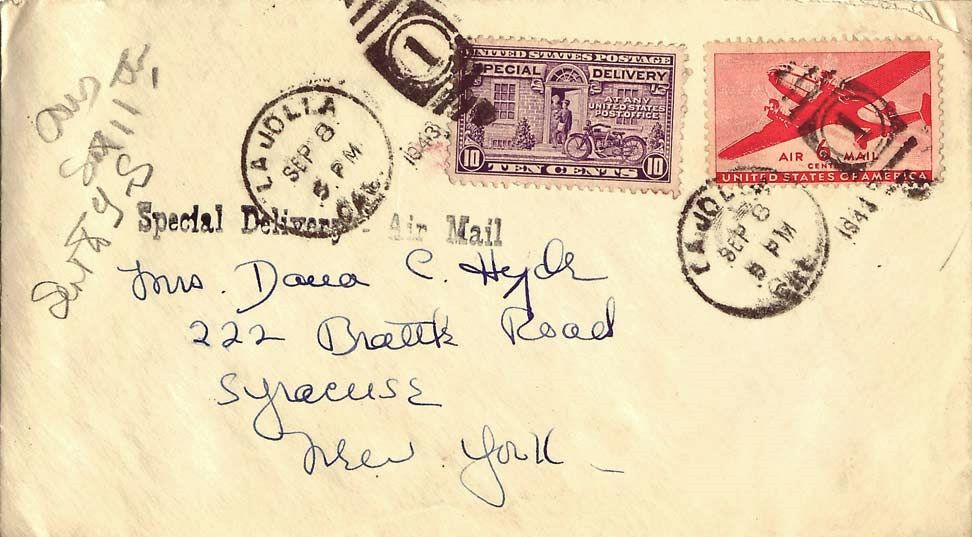 1
LA JOLLA
SEP 8
5 PM
CAL.
1943
UNITED STATES POSTAGE
SPECIAL DELIVERY
AT ANY
UNITED STATES
POST OFFICE
10 10
TEN CENTS
1
AIR 6 MAIL
CENTS
UNITED STATES OF AMERICA
LA JOLLA
SEP 8
5 PM
CAL.
1943
Special Delivery - Air Mail
Mrs. Dana C. Hyde
222 Brattle Road
Syracuse
New York